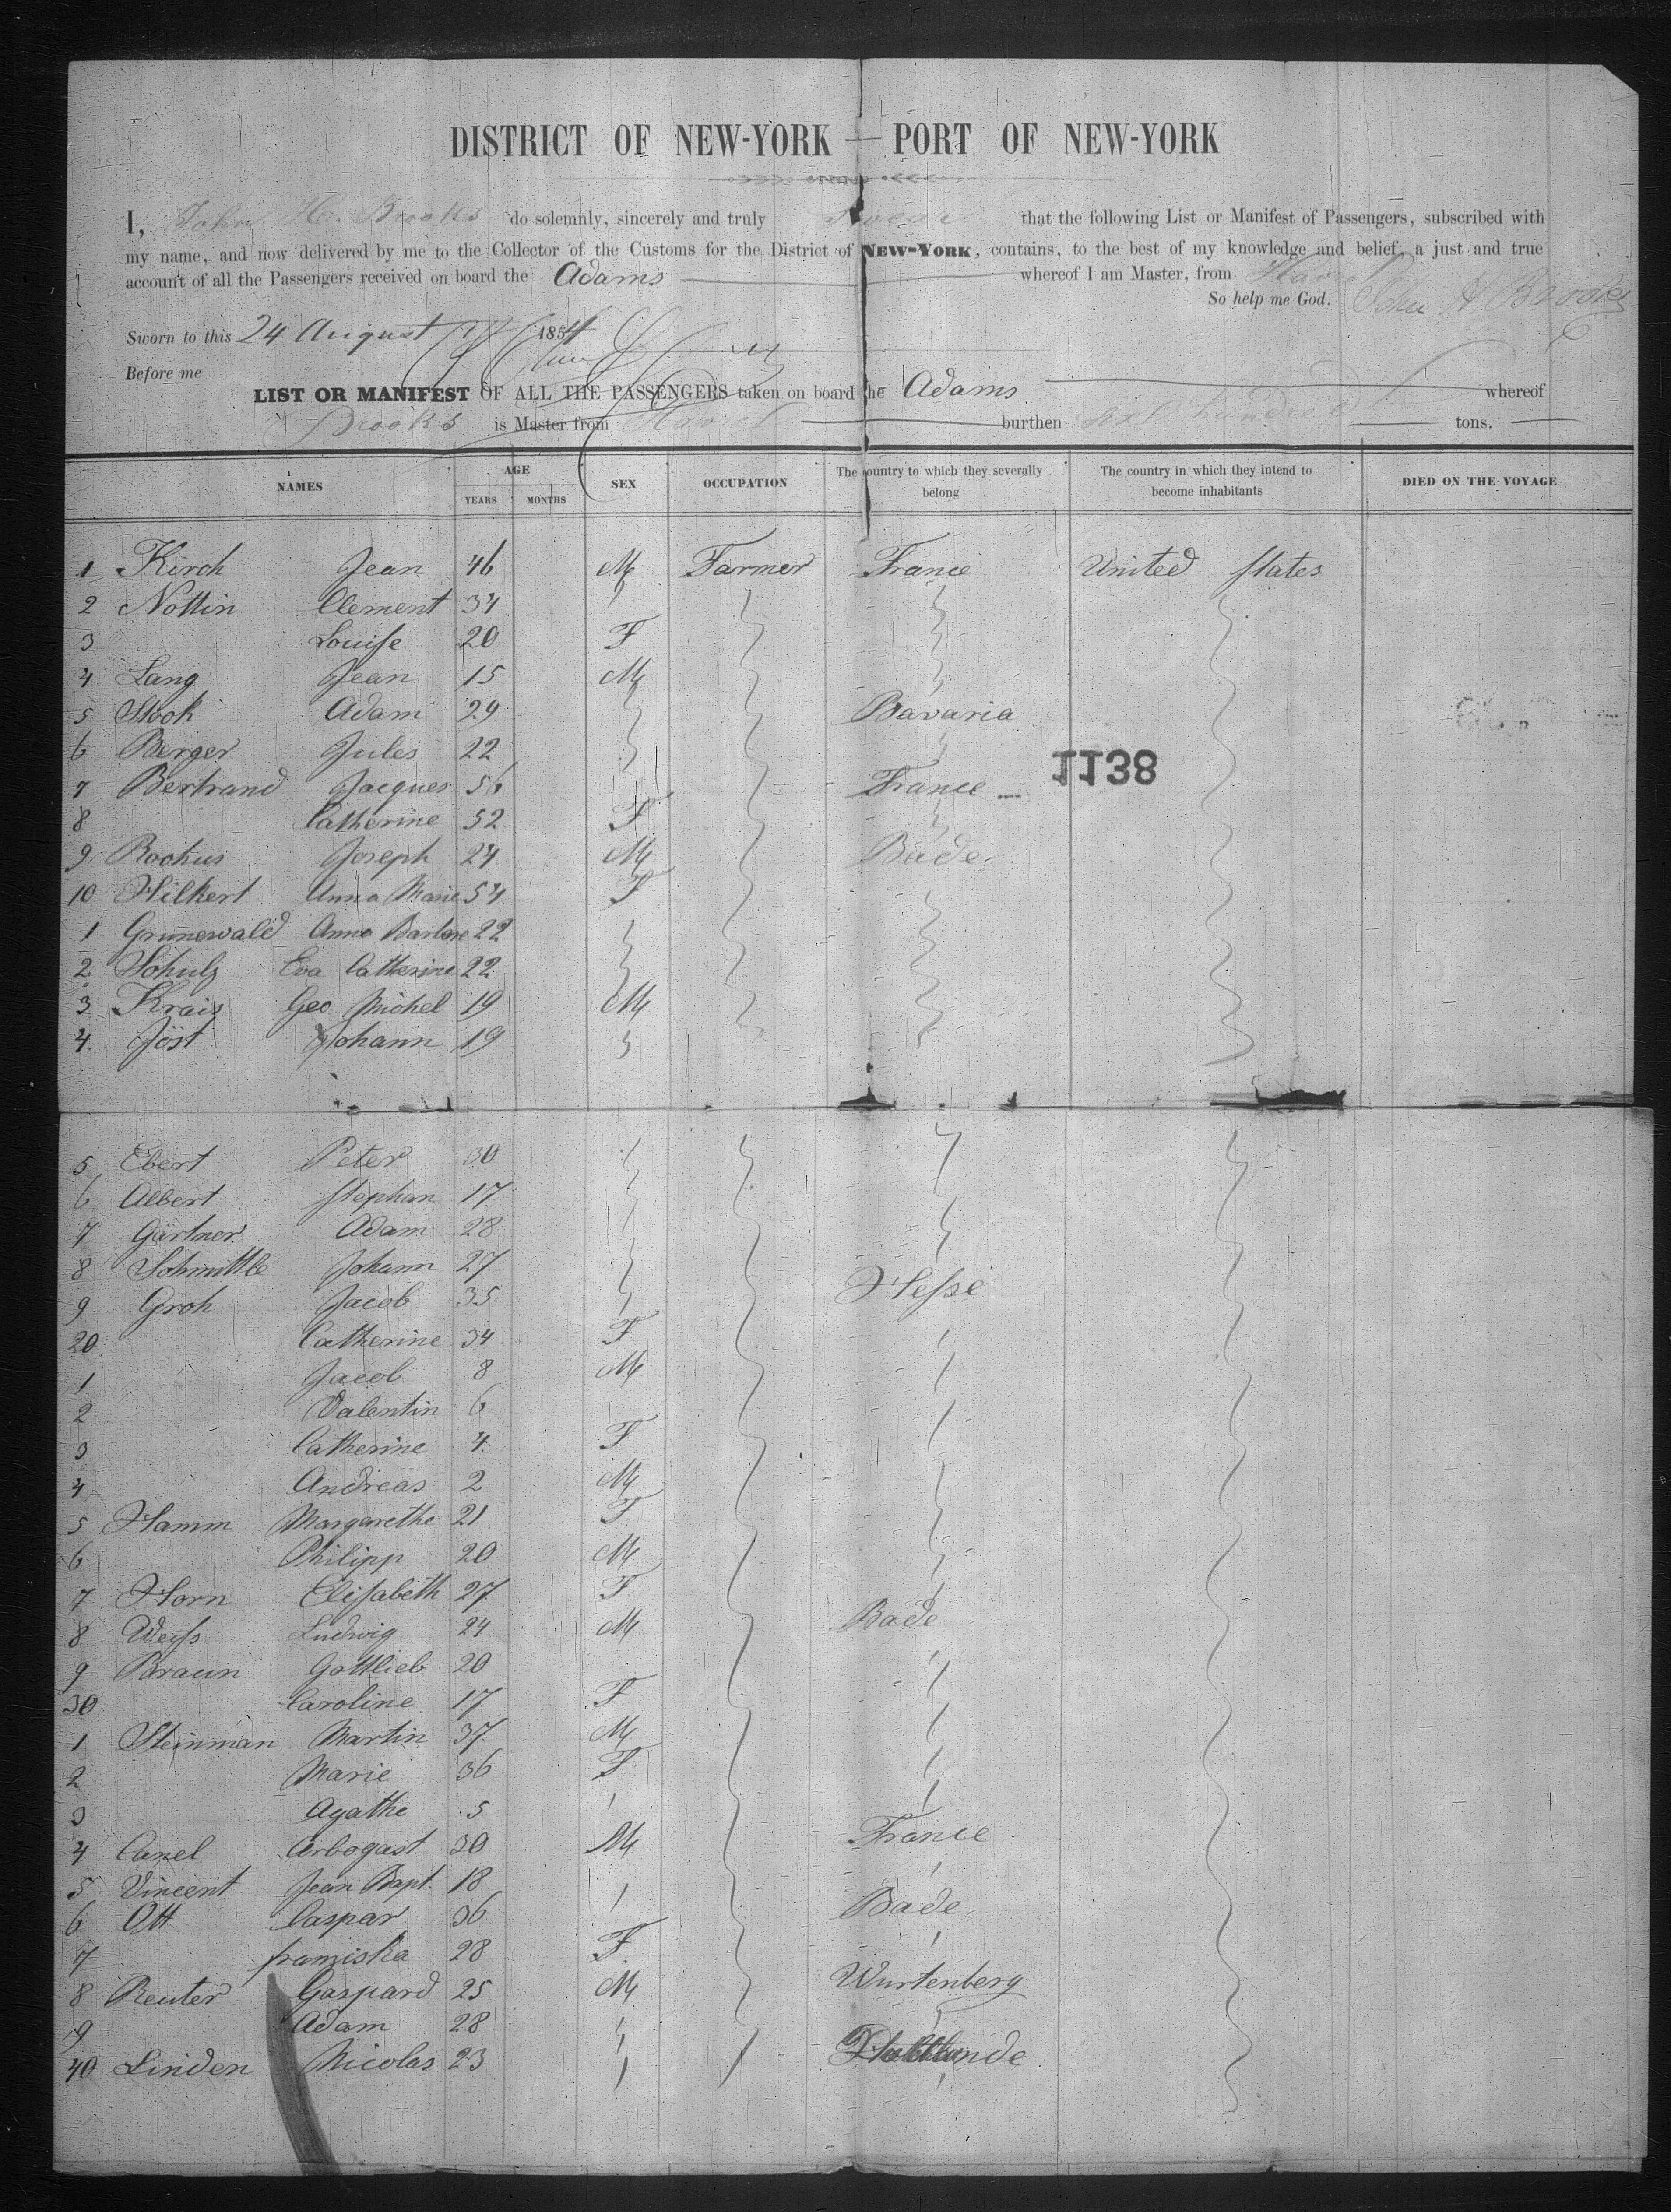 DISTRICT OF NEW-YORK — PORT OF NEW-YORK
I, John H. Brooks do solemnly, sincerely and truly swear that the following List or Manifest of Passengers, subscribed with
my name, and now delivered by me to the Collector of the Customs for the District of NEW-YORK, contains, to the best of my knowledge and belief, a just and true
account of all the Passengers received on board the Adams whereof I am Master, from Havre
So help me God. John H Brooks
Sworn to this 24 August 1854
Before me
LIST OR MANIFEST OF ALL THE PASSENGERS taken on board the Adams whereof
Brooks is Master from Havre burthen six hundred tons.
NAMES AGE YEARS MONTHS SEX OCCUPATION The country to which they severally belong The country in which they intend to become inhabitants DIED ON THE VOYAGE
1 Kirch Jean 46 M Farmer France United States
2 Nottin Clement 34
3 Louise 20 F
4 Lang Jean 15 M
5 Stock Adam 29 Bavaria
6 Berger Jules 22
1138
7 Bertrand Jacques 56 France
8 Catherine 52 F
9 Rockus Joseph 24 M Bade
10 Hilkert Anna Marie 54 F
1 Grunewald Anna Barbare 22
2 Schulz Eva Catherine 22
3 Krais Geo Michel 19 M
4 Jöst Johann 19
5 Ebert Peter 30
6 Albert Stephan 17
7 Gärtner Adam 28
8 Schmittle Johann 27
9 Groh Jacob 35 Hesse
20 Catherine 34 F
1 Jacob 8 M
2 Valentin 6
3 Catherine 4 F
4 Andreas 2 M
5 Hamm Margarethe 21 F
6 Philipp 20 M
7 Horn Elisabeth 27 F
8 Weyss Ludwig 24 M Bade
9 Braun Gottlieb 20
30 Caroline 17 F
1 Steinman Martin 37 M
2 Marie 36 F
3 Agathe 5
4 Canel Arbogast 30 M France
5 Vincent Jean Bapt. 18
6 Ott Caspar 36 Bade
7 franziska 28 F
8 Reuter Gaspard 25 M Wurtenberg
9 Adam 28
40 Linden Nicolas 23